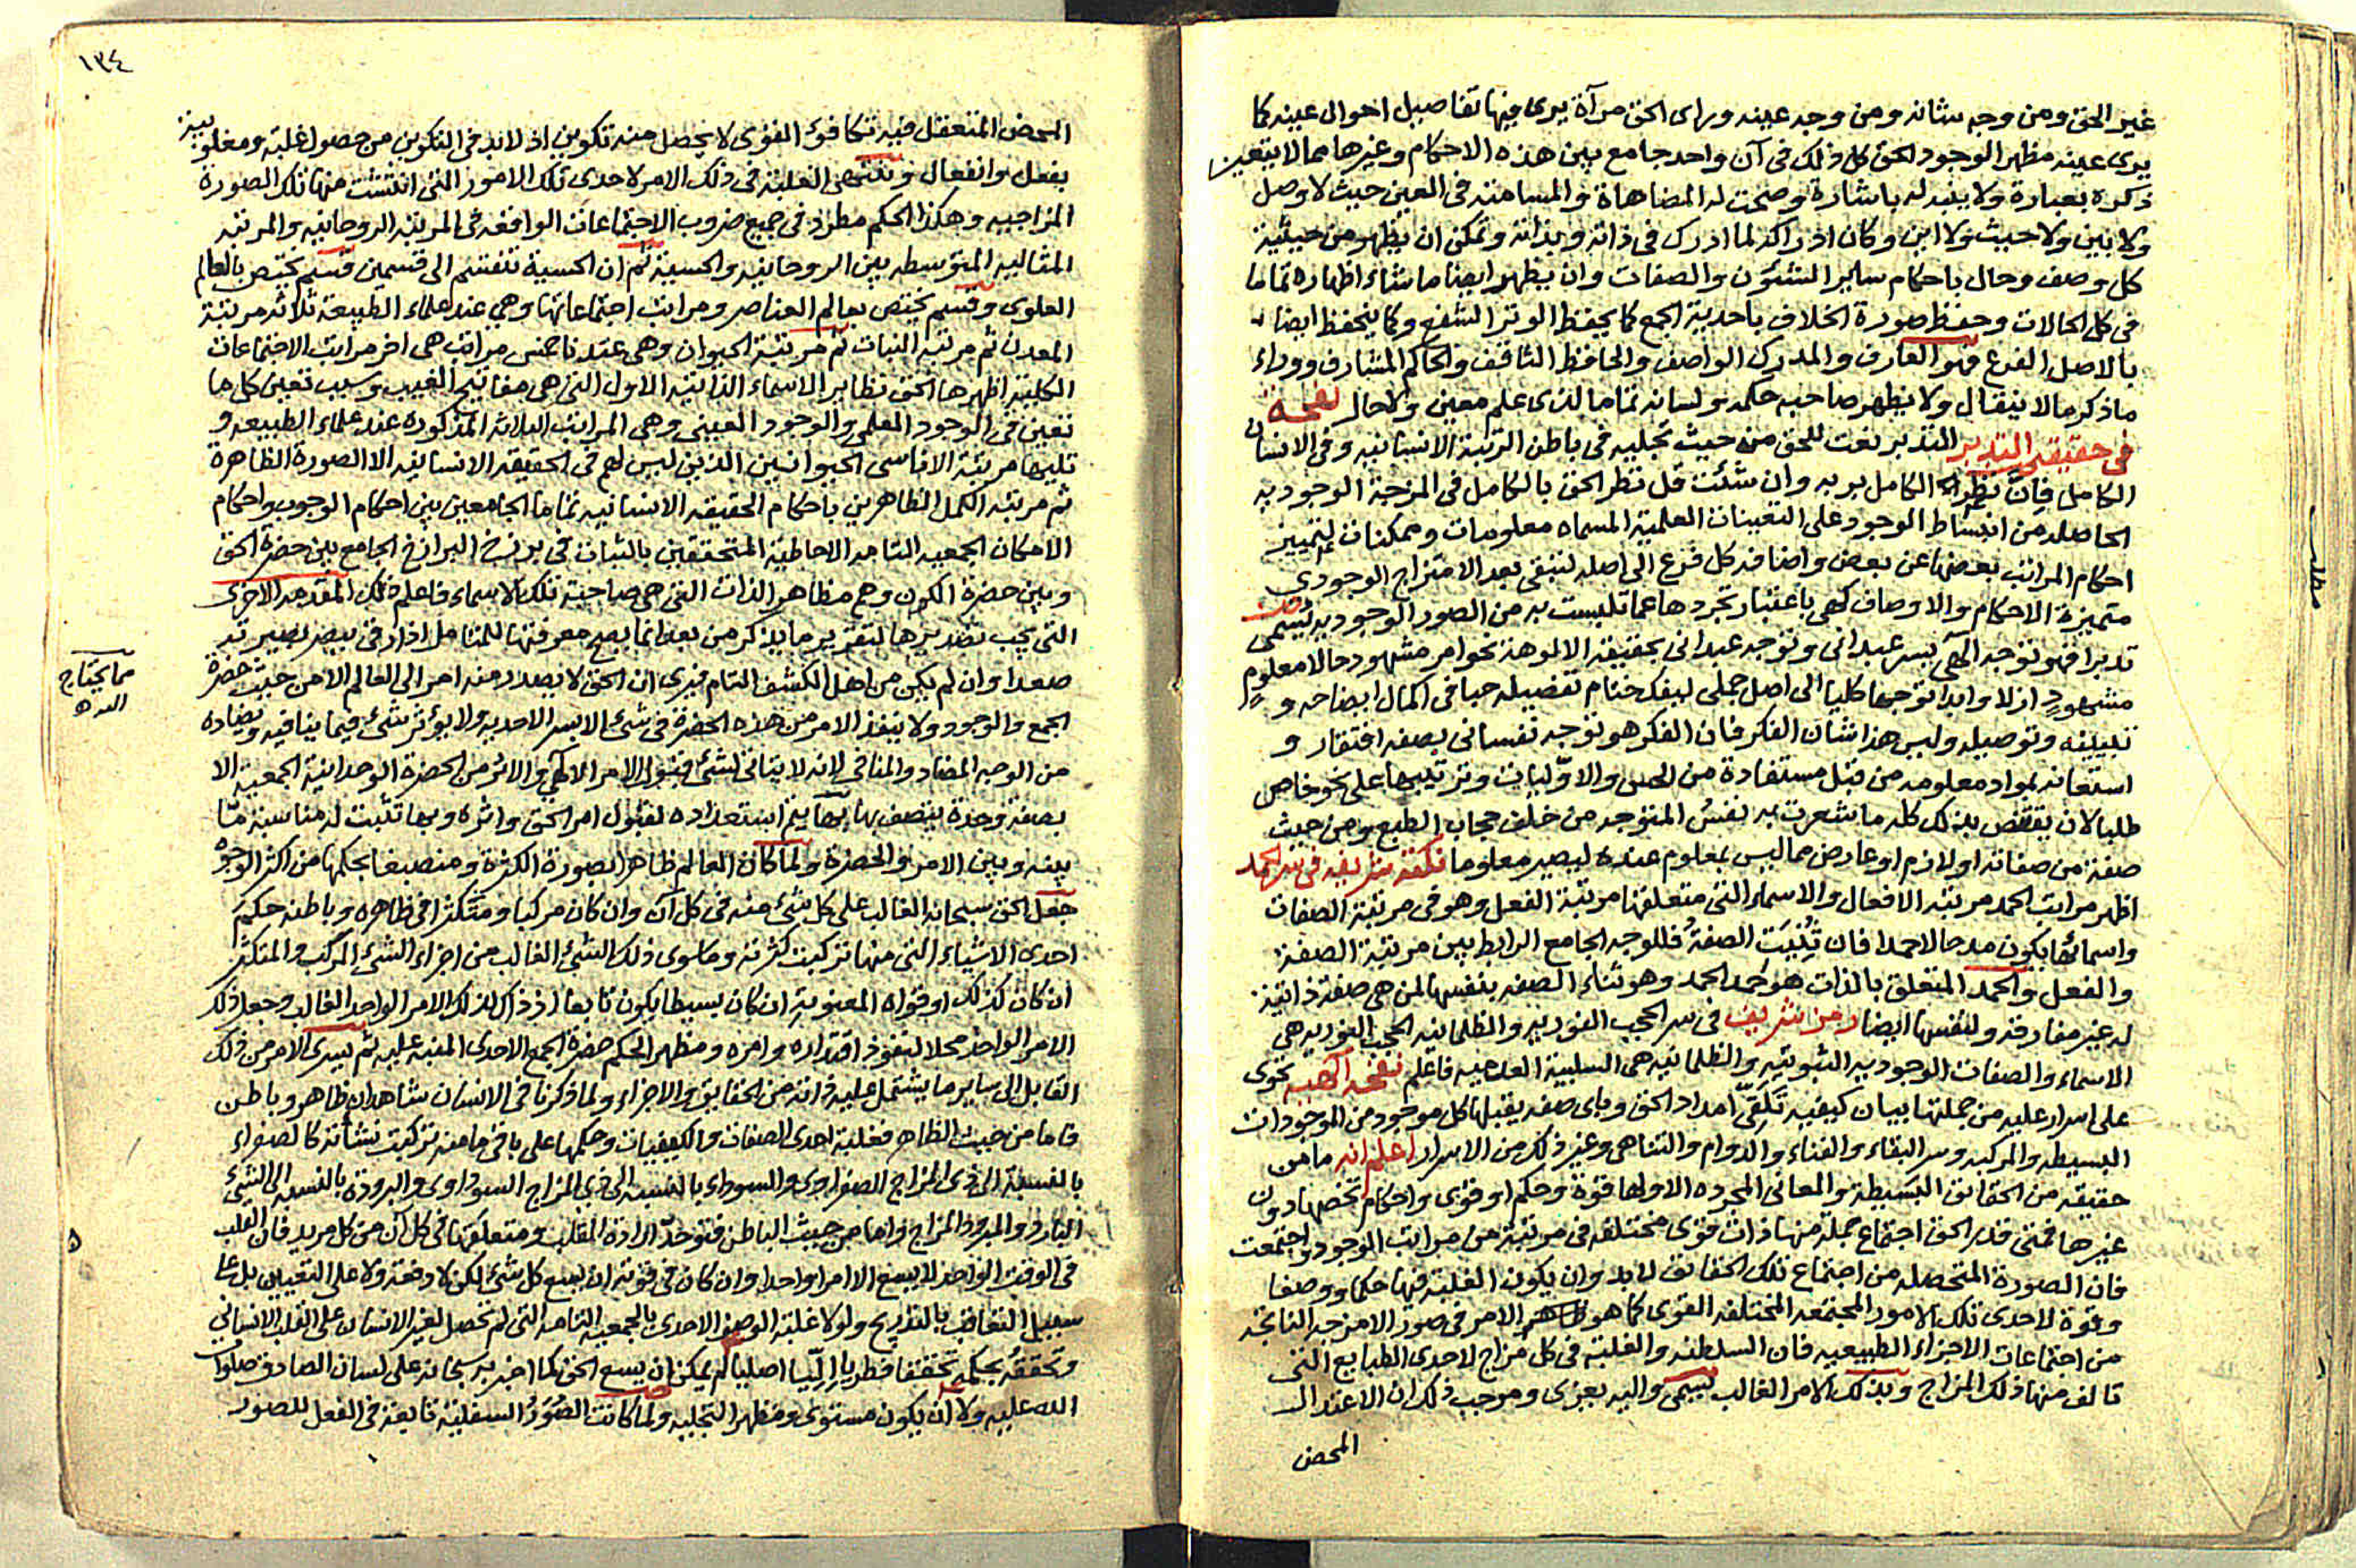 غير الحق ومن وجه شانه ومن وجه عينه وراى الحق مرآة يرى فيها تفاصيل احوال عينه كما
يرى عينه مظهر الوجود الحق كل ذلك فى آن واحد جامع بين هذه الاحكام وغيرها مما لا يتعين
ذكره بعبارة ولا ينبه له باشارة وصحت له المضاهاة والمسامتة فى العين حيث لا وصل
ولا بين ولا حيث ولا اين وكان ادراكه لما ادرك فى ذاته وبذاته وتمكن ان يظهر من حيثية
كل وصف وحال باحكام ساير الشئون والصفات وان يظهر ايضا ما شاء اظهاره تماما
فى كل الحالات وحفظ صورة الخلاف باحدية الجمع كما يحفظ الوتر الشفع وكما ينحفظ ايضا
بالاصل الفرع فهو العارف والمدرك الواصف والحافظ الثاقف والحاكم المشارف ووراء
ما ذكر ما لا ينقال ولا يظهر صاحب حكمه ولسانه تماما لذى علم معين ولا حال نفحة
فى حقيقة التدبر التدبر نعت للحق من حيث تجليه فى باطن الرتبة الانسانية وفى الانسان
الكامل فان نظر الكامل بربه وان شئت قل نظر الحق بالكامل فى المزجة الوجودية
الحاصلة من انبساط الوجود على التعينات العلمية المسماه معلومات وممكنات لتمييز
احكام المراتب بعضها عن بعض واضافة كل فرع الى اصله لتبقى بعد الامتزاج الوجودى
متميزة الاحكام والاوصاف كهى باعتبار تجردها عما تلبست به من الصور الوجودية يسمى
تدبرا فهو توجه الهى بسر عبدانى وتوجه عبدانى بحقيقة الالوهة نحو امر مشهود حالا معلوم
مشهود ازلا وابدا توجها كليا الى اصل جملى ليفك ختام تفصيله حبا فى اكمال ايضاحه و
تبليغه وتوصيله وليس هذا شان الفكر فان الفكر هو توجه نفسانى بصفة افتقار و
استعانة بمواد معلومة من قبل مستفادة من الحس والاوليات وترتيبها على نحو خاص
طلبا لان يقتنص بذلك كله ما شعرت به نفس المتوجه من خلف حجاب الطبع ومن حيث
صفة من صفاته او لازم او عارض مما ليس بمعلوم عنده ليصير معلوما نكتة شريفة فى سر الحمد
اظهر مراتب الحمد مرتبة الافعال والاسماء التى متعلقها مرتبة الفعل وهو فى مرتبة الصفات
واسمائها يكون مدحا لا حمدا فان ثنيت الصفة فللوجه الجامع الرابط بين مرتبة الصفة
والفعل والحمد المتعلق بالذات هو حمد الحمد وهو ثناء الصفة بنفسها لمن هى صفة ذاتية
له غير مفارقة ولنفسها ايضا رمز شريف فى سر الحجب النورية والظلمانية الحجب النورية هى
الاسماء والصفات الوجودية الثبوتية والظلمانية هى السلبية العدمية فاعلم نفحة الهية تحوى
على اسرار علية من جملتها بيان كيفية تلقى امداد الحق وباى صفة يقبلها كل موجود من الموجودات
البسيطة والمركبة وسر البقاء والفناء والدوام والتناهى وغير ذلك من الاسرار اعلم انه ما من
حقيقة من الحقائق البسيطة والمعانى المجرده الا ولها قوة وحكم او قوى واحكام تخصها دون
غيرها فمتى قدر الحق اجتماع جملة منها ذات قوى مختلفة فى مرتبة من مراتب الوجود واجتمعت
فان الصورة المتحصلة من اجتماع تلك الحقائق لا بد وان يكون الغلبة فيها حكما ووصفا
وقوة لاحدى تلك الامور المجتمعة المختلفة القوى كما هو الامر فى صور الامزجة الناتجة
من اجتماعات الاجزاء الطبيعية فان السلطنة والغلبة فى كل مزاج لاحدى الطبايع التى
تالف منها ذلك المزاج وبذلك الامر الغالب يسمى واليه يعزى وموجب ذلك ان الاعتدال
المحض
مطلب
١٣٤
المحض المتعقل فيه تكافؤ القوى لا يحصل منه تكوين اذ لا بد فى التكوين من حصول غلبة ومغلوبية
بفعل وانفعال وتنتهى الغلبة فى ذلك الامر لاحدى تلك الامور التى انتشت منها تلك الصورة
المزاجية وهكذا الحكم مطرد فى جميع ضروب الاجتماعات الواقعة فى المرتبة الروحانية والمرتبة
المثالية المتوسطة بين الروحانية والحسية ثم ان الحسية تنقسم الى قسمين قسم يختص بالعالم
العلوى وقسم يختص بعالم العناصر ومراتب اجتماعاتها وهى عند علماء الطبيعة ثلاثة مرتبة
المعدن ثم مرتبة النبات ثم مرتبة الحيوان وهى عندنا خمس مراتب هى اخر مراتب الاجتماعات
الكلية اظهرها الحق نظاير الاسماء الذاتية الاول التى هى مفاتيح الغيب وسبب تعين كل ما
تعين فى الوجود العلمى والوجود العينى وهى المراتب الثلاثة المذكورة عند علماء الطبيعة و
تليها مرتبة الاناسى الحيوانيين الذين ليس لهم فى الحقيقة الانسانية الا الصورة الظاهرة
ثم مرتبة الكمل الظاهرين باحكام الحقيقة الانسانية تماما الجامعين بين احكام الوجوب واحكام
الامكان الجمعية التامة الاحاطية المتحققين بالثبات فى برزخ البرازخ الجامع بين حضرة الحق
وبين حضرة الكون وهم مظاهر الذات التى هى صاحبة تلك الاسماء فاعلم ذلك المقدمة الاخرى
التى يجب تقديرها لتقرير ما يذكر من بعد انما يصح معرفتها للمتامل اذا رزق ببصر بصيرته
صعدا وان لم يكن من اهل الكشف التام فيرى ان الحق لا يصدر منه امر الى العالم الا من حيث حضرة
الجمع والوجود ولا ينفذ الامر من هذه الحضرة فى شئ الا بسر الاحدية ولا يؤثر شئ فيما ينافيه ويضاده
من الوجه المضاد والمنافى لانه لا يتاتى لشئ قبول الامر الالهى والاثر من الحضرة الوحدانية الجمعية الا
بصفة وحدة يتصف بها بها يتم استعداده لقبول امر الحق واثره وبها تثبت له مناسبة ما
بينه وبين الامر والحضرة ولما كان العالم ظاهرا بصورة الكثرة ومنصبغا بحكمها من اكثر الوجوه
جعل الحق سبحانه الغالب على كل شئ منه فى كل آن وان كان مركبا ومتكثرا فى ظاهره وباطنه حكم
احدى الاشياء التى منها تركبت كثرته وما سوى ذلك الشئ الغالب من اجزاء الشئ المركب والمتكثر
ان كان كذلك او قواه المعنوية ان كان بسيطا يكون تابعا اذ ذاك لذلك الامر الواحد الغالب وجعل ذلك
الامر الواحد محلا لنفوذ اقتداره وامره ومظهرا لحكم حضرة الجمع الاحدى المنبه عليه ثم يسرى الامر من ذلك
القابل الى ساير ما يشتمل عليه ذاته من الحقايق والاجزاء ولما ذكرنا فى الانسان شاهدان ظاهر وباطن
فاما من حيث الظاهر فغلبة احدى الصفات والكيفيات وحكمها على باقى ما منه تركبت نشاته كالصفراء
بالنسبة الى ذى المزاج الصفراوى والسوداء بالنسبة الى ذى المزاج السوداوى والبرودة بالنسبة الى الشئ
البارد والمبرود المزاج واما من حيث الباطن فتوحد الارادة القلب ومتعلقها فى كل آن من كل مريد فان القلب
فى الوقت الواحد لا يسع الا امرا واحدا وان كان فى قوته ان يسع كل شئ لكن لا دفعة ولا على التعيين بل على
سبيل التعاقب بالتدريج ولولا غلبة الوصف الاحدى بالجمعية التامة التى لم تحصل لغير الانسان على القلب الانسانى
وتحققه بحكمه تحققا فطريا اصليا لم يمكن ان يسع الحق كما اخبر به سبحانه على لسان الصادق صلوات
الله عليه ولا ان يكون مستوى ومظهرا لتجليه ولما كانت الصور السفلية تابعة فى الفعل للصور
مما يحتاج
اليه